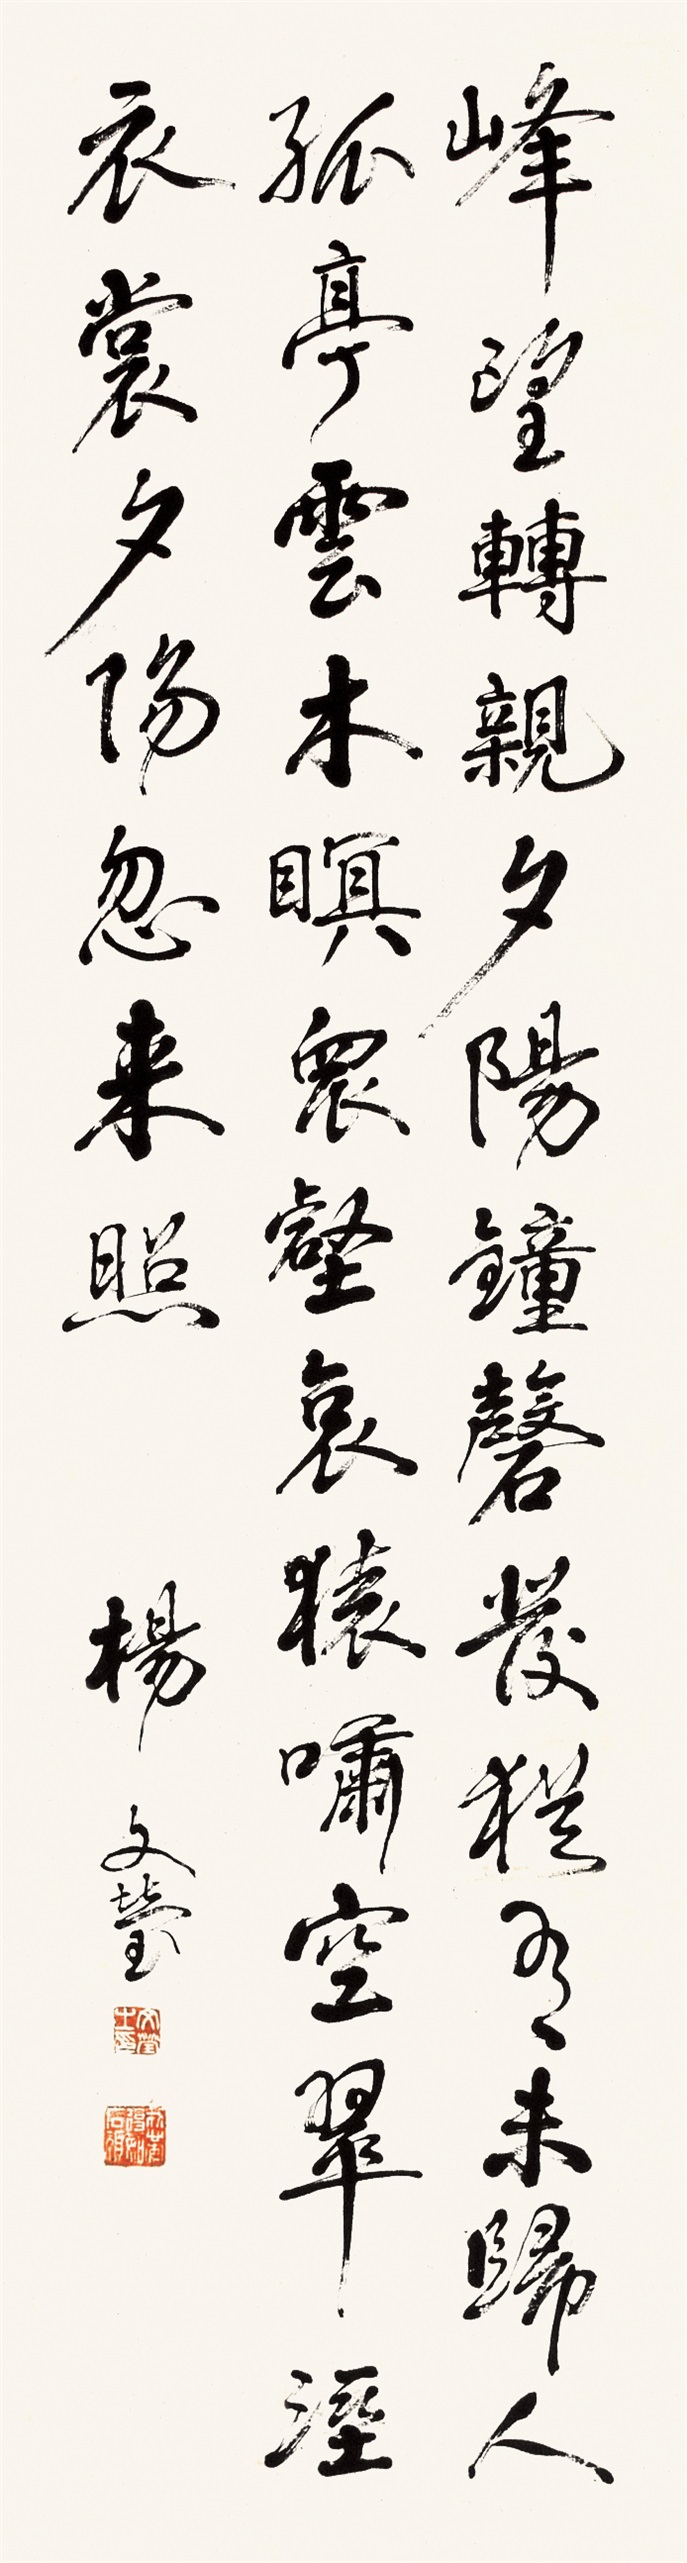 峰望轉親夕陽鐘磬發猶有未歸人
孤亭雲木暝衆壑哀猿嘯空翠溼
衣裳夕陽忽来照
楊文瑩